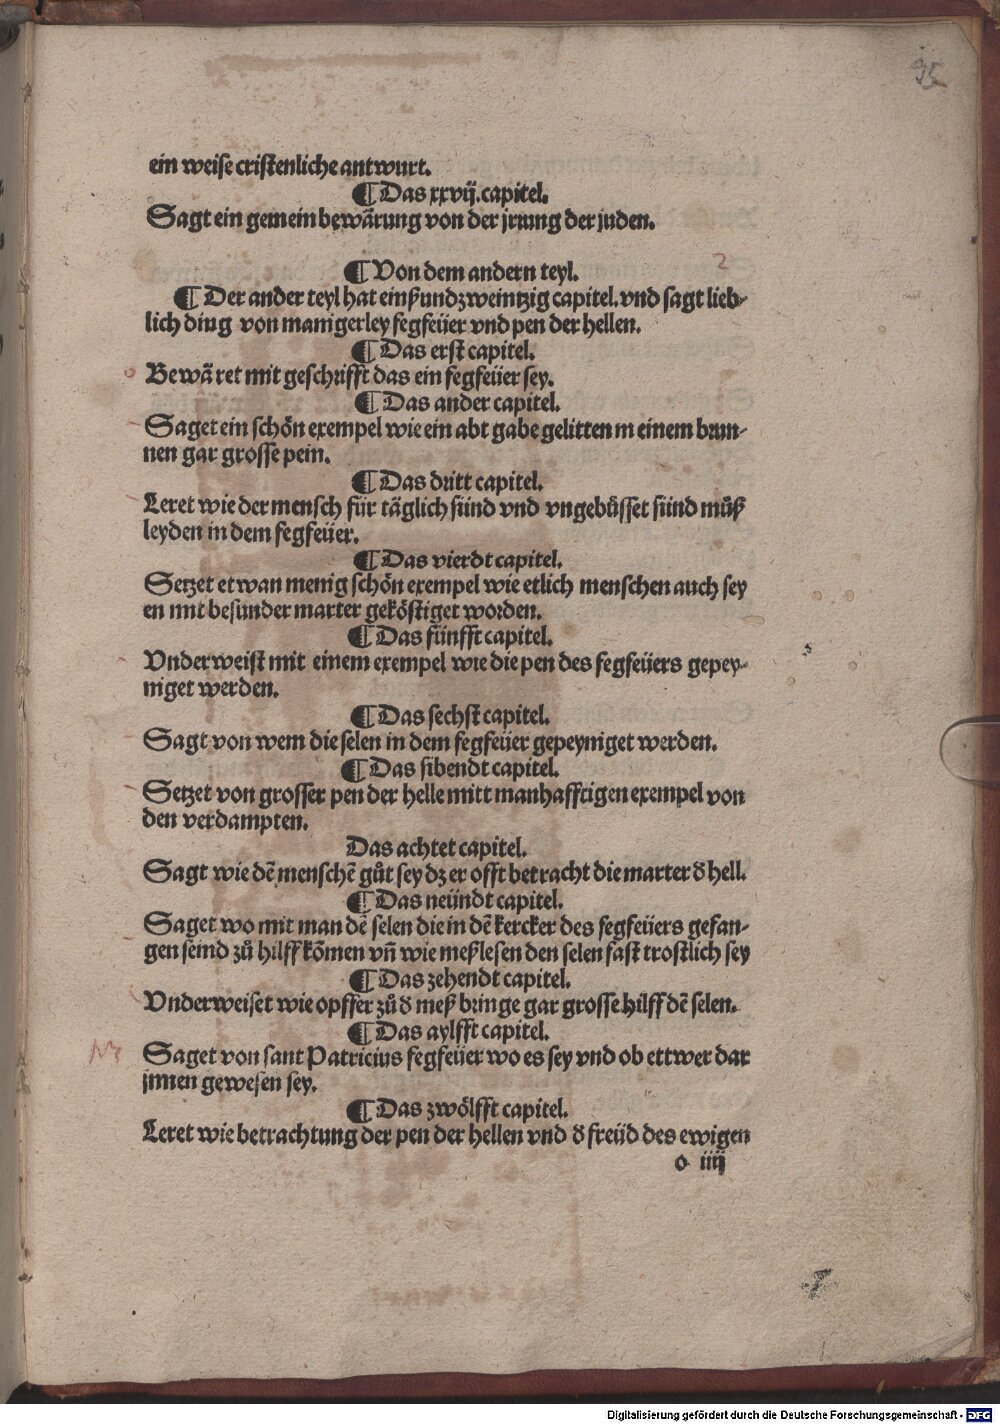 95
ein weise cristenliche antwurt.
¶ Das xxvij. capitel.
Sagt ein gemein bewärung von der jrrung der juden.
2
¶ Von dem andern teyl.
¶ Der ander teyl hat einßundzweintzig capitel. vnd sagt lieb-
lich ding von manigerley fegfeüer vnd pen der hellen.
¶ Das erst capitel.
Bewäret mit geschrifft das ein fegfeüer sey.
¶ Das ander capitel.
Saget ein schön exempel wie ein abt gabe gelitten in einem brun-
nen gar grosse pein.
¶ Das dritt capitel.
Leret wie der mensch für täglich sünd vnd vngebůsset sünd můß
leyden in dem fegfeüer.
¶ Das vierdt capitel.
Setzet etwan menig schön exempel wie etlich menschen auch sey
en mit besunder marter geköstiget worden.
¶ Das fünfft capitel.
Vnderweist mit einem exempel wie die pen des fegfeüers gepey-
niget werden.
¶ Das sechst capitel.
Sagt von wem die selen in dem fegfeüer gepeyniget werden.
¶ Das sibendt capitel.
Setzet von grosser pen der helle mitt manhafftigen exempel von
den verdampten.
Das achtet capitel.
Sagt wie dē menschē gůt sey dz er offt betracht die marter đ hell.
¶ Das neündt capitel.
Saget wo mit man dē selen die in dē kercker des fegfeüers gefan-
gen seind zů hilff kōmen vñ wie meßlesen den selen fast trostlich sey
¶ Das zehendt capitel.
Vnderweiset wie opffer zů đ meß bringe gar grosse hilff dē selen.
¶ Das aylfft capitel.
Saget von sant Patricius fegfeüer wo es sey vnd ob ettwer dar
jnnen gewesen sey.
¶ Das zwölfft capitel.
Leret wie betrachtung der pen der hellen vnd đ freüd des ewigen
o iiij
Digitalisierung gefördert durch die Deutsche Forschungsgemeinschaft - DFG